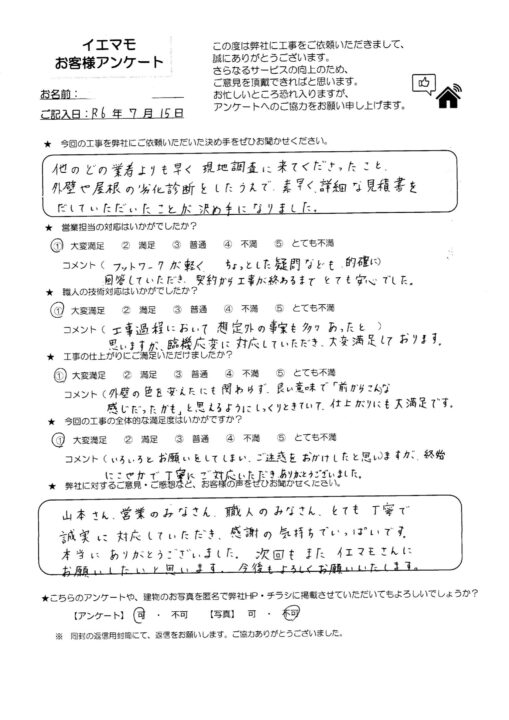 イエマモ
お客様アンケート
この度は弊社に工事をご依頼いただきまして、
誠にありがとうございます。
さらなるサービスの向上のため、
ご意見を頂戴できればと思います。
お忙しいところ恐れ入りますが、
アンケートへのご協力をお願い申し上げます。
お名前：
ご記入日：R6年7月15日
★ 今回の工事を弊社にご依頼いただいた決め手をぜひお聞かせください。
他のどの業者よりも早く現地調査に来てくださったこと、
外壁や屋根の劣化診断をしたうえで、素早く、詳細な見積書を
だしていただいたことが決め手になりました。
★ 営業担当の対応はいかがでしたか？
① 大変満足 ② 満足 ③ 普通 ④ 不満 ⑤ とても不満
コメント（フットワークが軽く ちょっとした疑問なども 的確に）
回答していただき、契約から工事が終わるまでとても安心でした。
★ 職人の技術対応はいかがでしたか？
① 大変満足 ② 満足 ③ 普通 ④ 不満 ⑤ とても不満
コメント（工事過程において 想定外の事案も多々あったと）
思いますが、臨機応変に対応していただき、大変満足しております。
★ 工事の仕上がりにご満足いただけましたか？
① 大変満足 ② 満足 ③ 普通 ④ 不満 ⑤ とても不満
コメント（外壁の色を変えたにも関わらず、良い意味で「前からこんな
感じだったかも」と思えるようにしっくりときていて、仕上がりにも大満足です。
★ 今回の工事の全体的な満足度はいかがですか？
① 大変満足 ② 満足 ③ 普通 ④ 不満 ⑤ とても不満
コメント（いろいろとお願いをしてしまい、ご迷惑をおかけしたと思いますが、終始
にこやかで丁寧にご対応いただきありがとうございました。
★ 弊社に対するご意見・ご感想など、お客様の声をぜひお聞かせください。
山本さん、営業のみなさん、職人のみなさん、とても丁寧で
誠実に対応していただき、感謝の気持ちでいっぱいです。
本当にありがとうございました。次回もまたイエマモさんに
お願いしたいと思います。今後もよろしくお願いいたします。
★こちらのアンケートや、建物のお写真を匿名で弊社HP・チラシに掲載させていただいてもよろしいでしょうか？
【アンケート】 可 ・ 不可 【写真】 可 ・ 不可
※ 同封の返信用封筒にて、返信をお願いします。ご協力ありがとうございました。